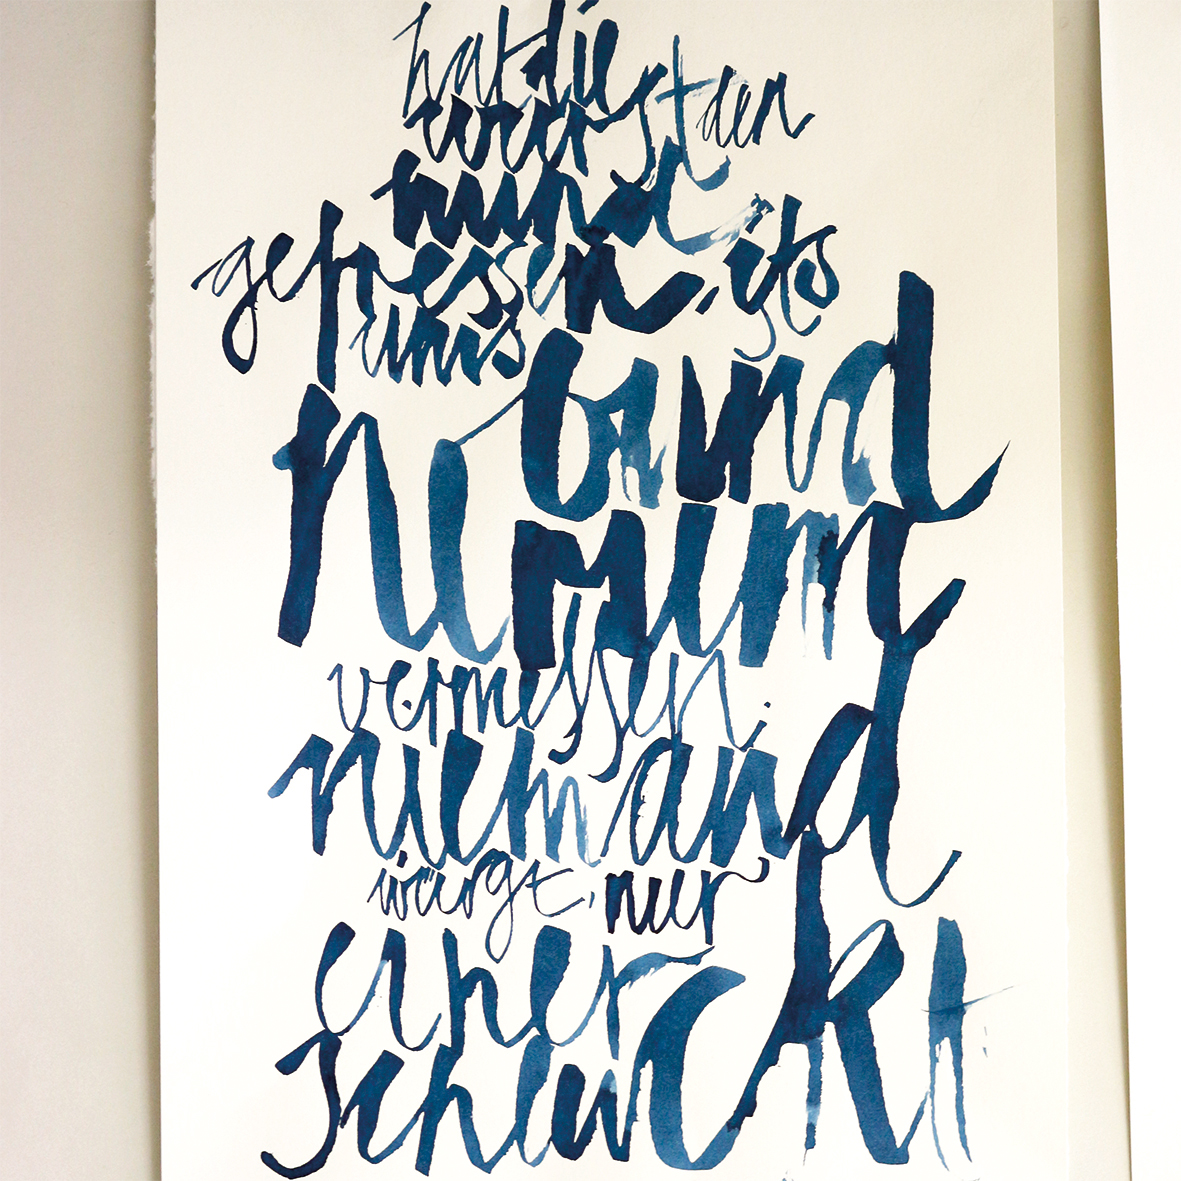 hat die
wurst den
hund
gefressen,
uns
vermessen:
niemand
würgt, nur
einer
schluckt